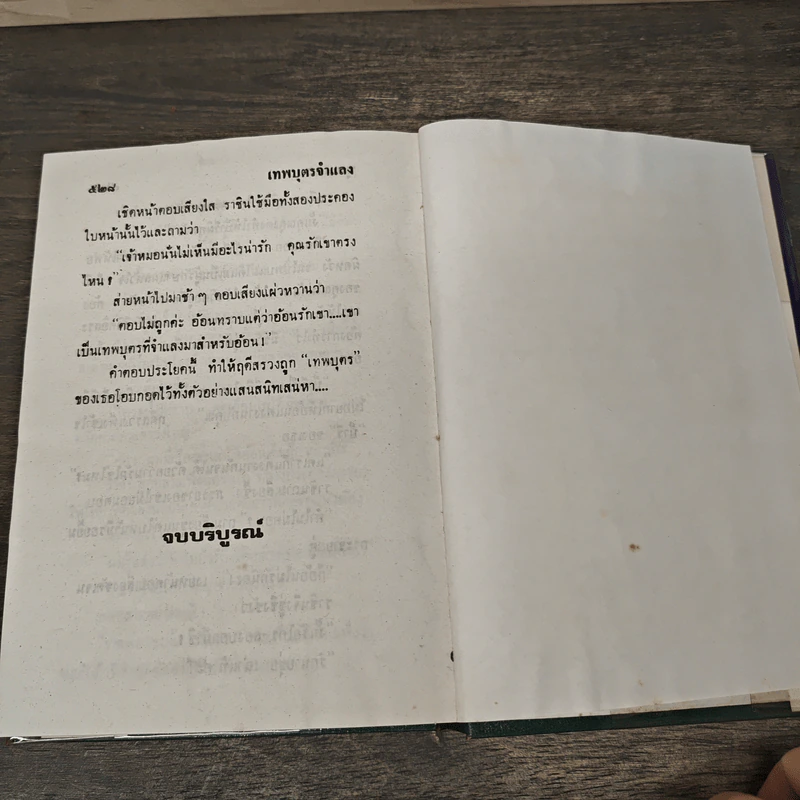 ๕๒๘ เทพบุตรจำแลง
เชิดหน้าตอบเสียงใส ราชินใช้มือทั้งสองประคอง
ใบหน้านั้นไว้และถามว่า
"เจ้าหมอนั่นไม่เห็นมีอะไรน่ารัก คุณรักเขาตรง
ไหน ?"
ส่ายหน้าไปมาช้า ๆ ตอบเสียงแผ่วหวานว่า
"ตอบไม่ถูกค่ะ อ้อนทราบแต่ว่าอ้อนรักเขา....เขา
เป็นเทพบุตรที่จำแลงมาสำหรับอ้อน !"
คำตอบประโยคนี้ ทำให้ฤดีสรวงถูก "เทพบุตร"
ของเธอโอบกอดไว้ทั้งตัวอย่างแสนสนิทเสน่หา....
จบบริบูรณ์